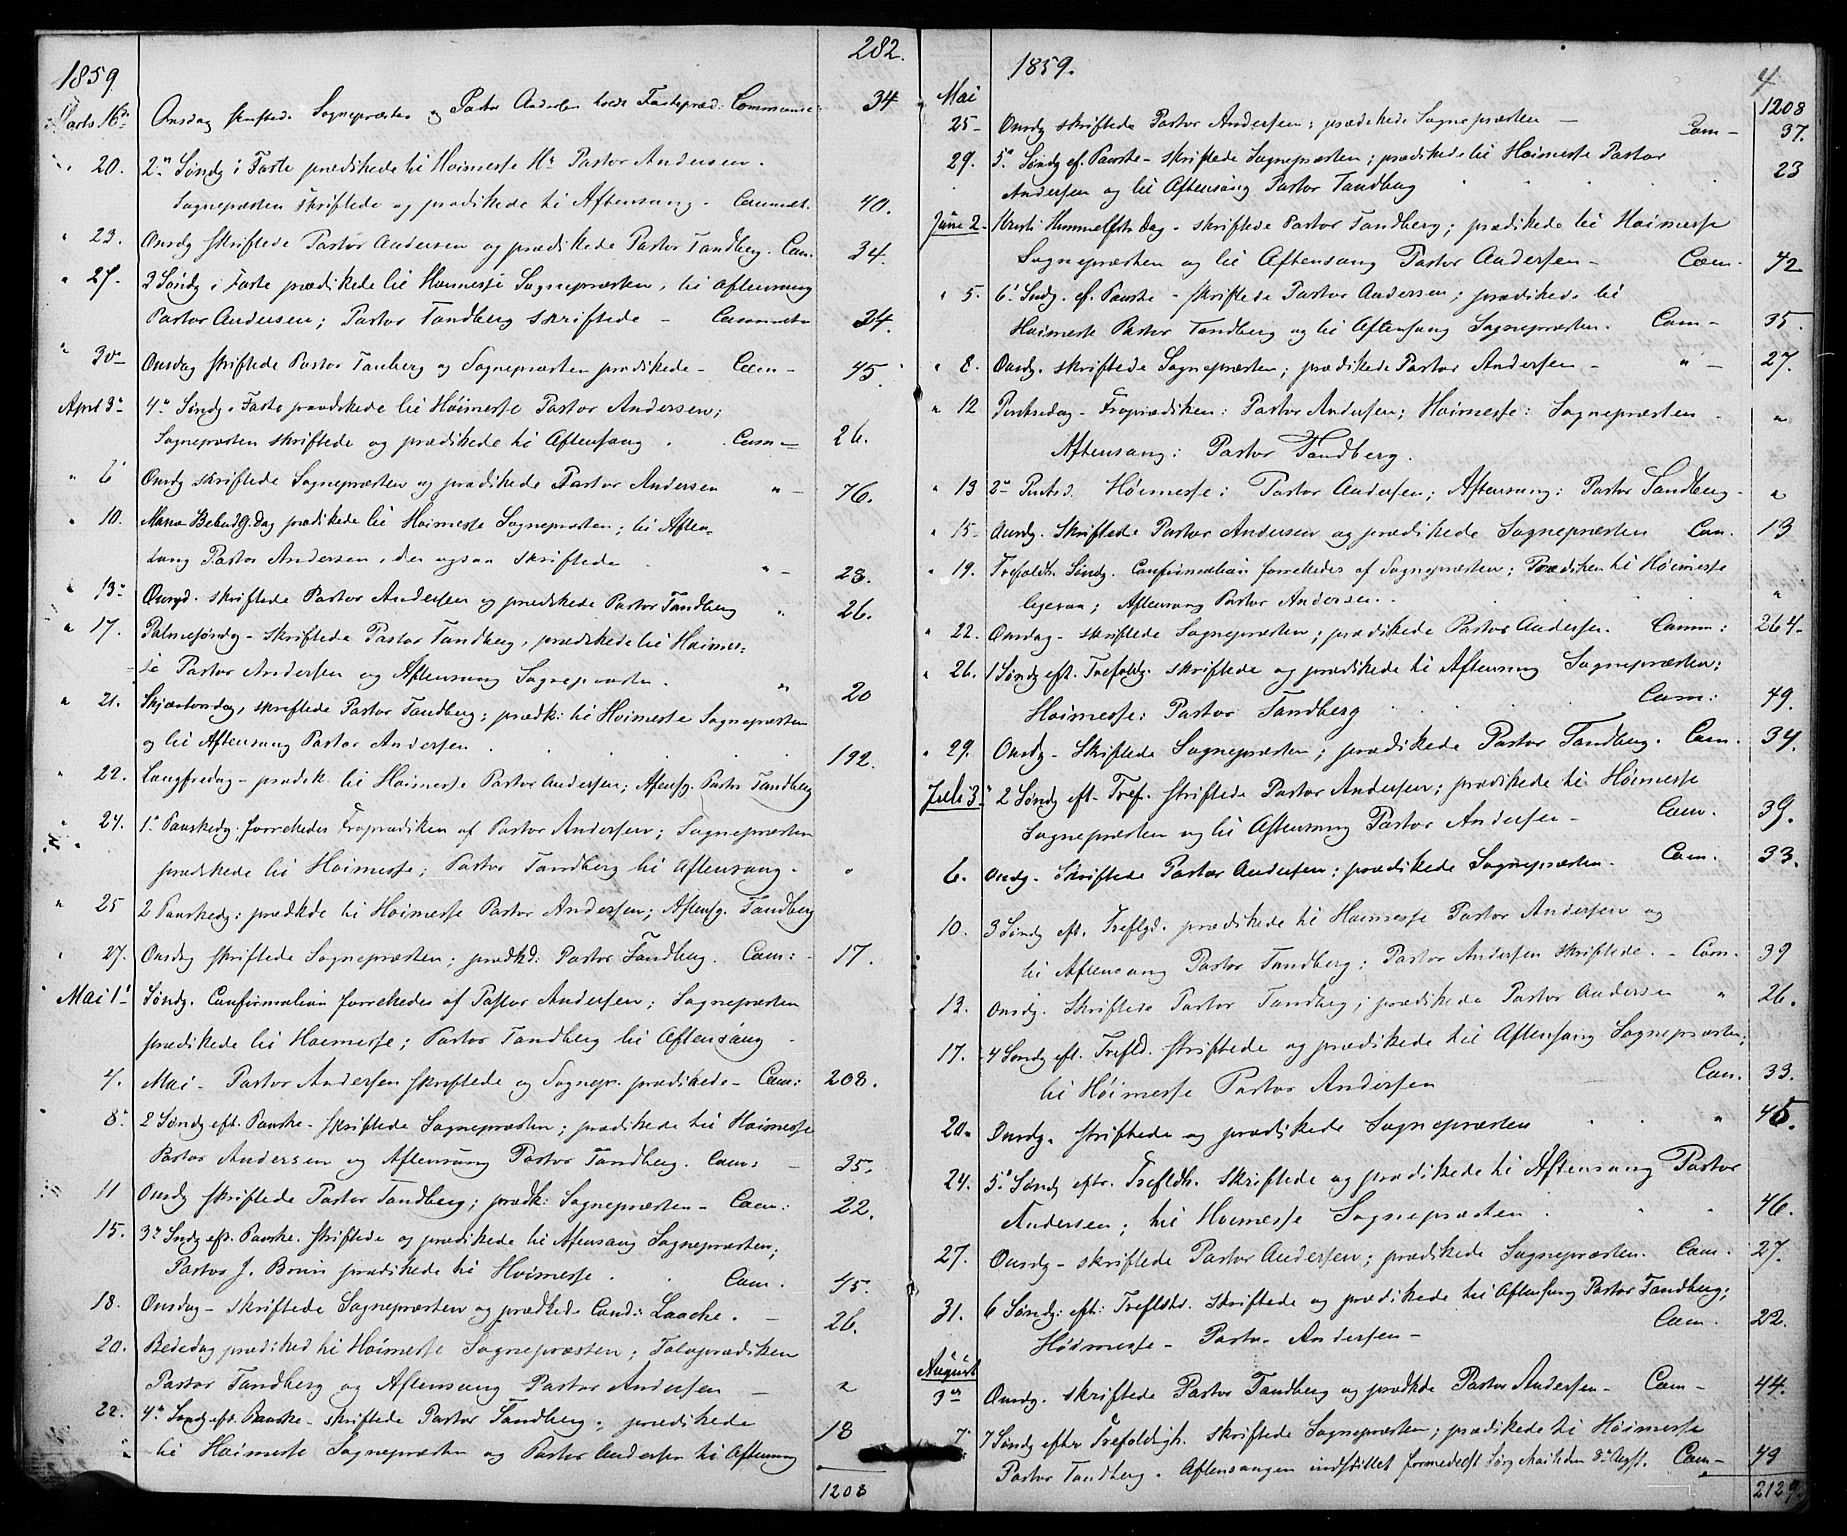 1859.
282.
Marts 16de Onsdag skriftede Sognepræsten og Pastor Andersen holdt Fastepræd: Communic: 34
20. 2den Søndg i Faste prædikede til Høimesse Hr Pastor Andersen.
Sognepræsten skriftede og prædikede til Aftensang. Communct. 40.
" 23. Onsdg skriftede Pastor Andersen og prædikede Pastor Tandberg. Com. 34.
" 27. 3 Søndg i Faste prædikede til Høimesse Sognepræsten, til Aftensang
Pastor Andersen; Pastor Tandberg skriftede — Communct 34.
" 30te Onsdag skriftede Pastor Tanberg og Sognepræsten prædikede — Com — 45.
April 3die 4de Søndg i Faste prædikede til Høimesse Pastor Andersen;
Sognepræsten skriftede og prædikede til Aftensang . Com — 26.
" 6 Onsdg skriftede Sognepræsten og prædikede Pastor Andersen " — 76.
" 10. Mariæ Bebud. Dag prædikede til Høimesse Sognepræsten; til Aften-
sang Pastor Andersen, der ogsaa skriftede . " — 23.
" 13de Onsgd. skriftede Pastor Andersen og prædikede Pastor Tandberg " 26.
" 17. Palmesøndg — skriftede Pastor Tandberg, prædikede til Høimes-
se Pastor Andersen og Aftensang Sognepræsten. " 20
" 21. Skjærtorsdag, skriftede Pastor Tandberg; prædk: til Høimesse Sognepræsten
og til Aftensang Pastor Andersen . . . 192.
" 22. Langfredag — prædik. til Høimesse Pastor Andersen; Aftensg. Pastor Tandberg
" 24. 1ste Paaskedg. forrettedes Froprædiken af Pastor Andersen; Sognepræsten
prædikede til Høimesse; Pastor Tandberg til Aftensang. "
" 25 2 Paaskedg: prædkde til Høimesse Pastor Andersen; Aftensg. Tandberg
" 27. Onsdag skriftede Sognepræsten; prædkd: Pastor Tandberg. Com: — 17.
Mai 1ste Søndg. Confirmation forrettedes af Pastor Andersen; Sognepræsten
prædikede til Høimesse; Pastor Tandberg til Aftensang
4. Mai — Pastor Andersen skriftede og Sognepr. prædikede — Com: 208.
8de 2 Søndg eft. Paaske — skriftede Sognepræsten; prædikede til Høimesse
Pastor Andersen og Aftensang Pastor Tandberg. Com: — 35.
11 Onsdg skriftede Pastor Tandberg; prædk: Sognepræsten — Com: 22.
15. 3die Søndg eft. Paaske. skriftede og prædikede til Aftensang Sognepræsten;
Pastor J. Bruun prædikede til Høimesse. . Com. 45.
18. Onsdag — skriftede Sognepræsten og prædkede Cand: Laache. — 26.
20. Bededag prædiked til Høimesse Sognepræsten; Froprædiken
Pastor Tandberg og Aftensang Pastor Andersen — "
22. 4de Søndg eft. Paaske — skriftede Pastor Tandberg; prædikede 18
til Høimesse Sognepræsten og Pastor Andersen til Aftensang
1208
1859.
4
1208
Mai
25 — Onsdg skriftede Pastor Andersen; prædikede Sognepræsten — Com — 37.
29. 5te Søndg ef. Paaske — skriftede Sognepræsten; prædikede til Høimesse Pastor
Andersen og til Aftensang Pastor Tandberg . . . 23
Juni 2. Kristi Himmelfts Dag — skriftede Pastor Tandberg; prædikede til Høimesse
Sognepræsten og til Aftensang Pastor Andersen — Com. 42
" 5. 6te Søndg. ef. Paaske — skriftede Pastor Andersen; prædikede til
Høimesse Pastor Tandberg og til Aftensang Sognepræsten. Com — 35.
" 8. Onsdg. skriftede Sognepræsten; prædikede Pastor Andersen — " — 27.
" 12 Pintsedag — Froprædiken: Pastor Andersen; Høimesse: Sognepræsten . "
Aftensang: Pastor Tandberg.
" 13 2den Pintsd. Høimesse: Pastor Andersen; Aftensang: Pastor Tandberg. "
" 15 — Onsdg. Skriftede Pastor Andersen og prædikede Sognepræsten Com. 13
" 19. Trefoldh. Søndg. Confirmation forrettedes af Sognepræsten; Prædiken til Høimesse
ligesaa; Aftensang Pastor Andersen. . . . "
" 22. Onsdag — skriftede Sognepræsten; prædikede Pastor Andersen. Comm: 264.
" 26. 1 Søndg eft. Trefoldg. skriftede og prædikede til Aftensang Sognepræsten;
Høimesse: Pastor Tandberg . . . Com: 49.
" 29. Onsdg — Skriftede Sognepræsten; prædikede Pastor Tandberg. Com. 34.
Juli 3die 2 Søndg eft. Tref. skriftede Pastor Andersen; prædikede til Høimesse
Sognepræsten og til Aftensang Pastor Andersen — Com. 39.
6. Onsdg. Skriftede Pastor Andersen; prædikede Sognepræsten. Com. 33.
10. 3 Søndg eft. Treflgd. prædikede til Høimesse Pastor Andersen og
til Aftensang Pastor Tandberg; Pastor Andersen skriftede. — Com. 39
13. Onsdg. Skriftede Pastor Tandberg; prædikede Pastor Andersen " 26.
17. 4 Søndg eft. Trefld. skriftede og prædikede til Aftensang Sognepræsten;
til Høimesse Pastor Andersen Com. 33.
20. Onsdg. skriftede og prædikede Sognepræsten . . " 45.
24. 5te Søndg eftr. Trefldh. skriftede og prædikede til Aftensang Pastor
Andersen; til Høimesse Sognepræsten . " " 46.
27. Onsdg — skriftede Pastor Andersen; prædikede Sognepræsten. Com. 27.
31. 6 Søndg: eft: Trefldhd. skriftede og prædikede til Aftensang Pastor Tandberg;
Høimesse — Pastor Andersen — Com. 22.
August
3die Onsdg. skriftede Pastor Tandberg og prædkde Pastor Andersen — Com — 44.
7. 7 Søndg efter Trefoldigh. skriftede Sognepræsten; prædikede til Høimesse
Pastor Tandberg. Aftensangen indstillet formedelst Sørge Høitiden 8de Augst. Com — 49
2129.